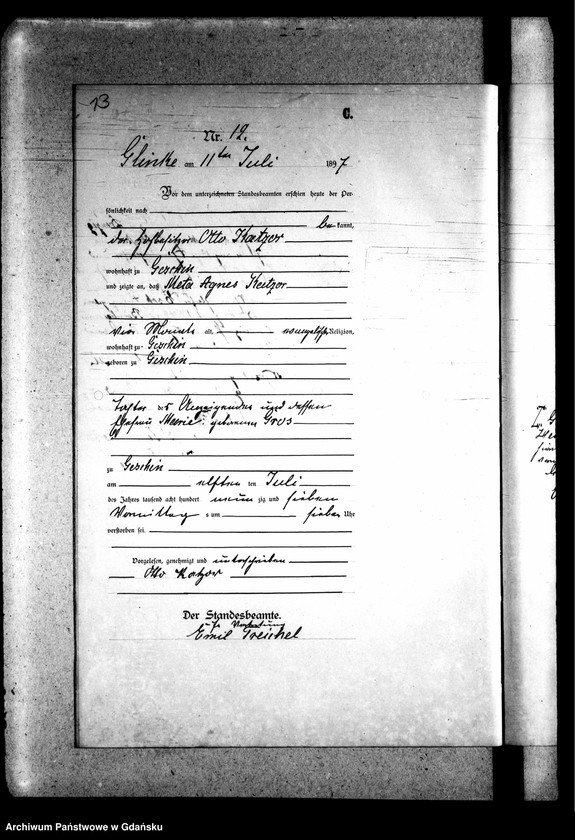 13
C.
Nr. 12.
Glinke am 11ten Juli 1897
Vor dem unterzeichneten Standesbeamten erschien heute der Per-
sönlichkeit nach
be kannt,
der Hofbesitzer Otto Katzor
wohnhaft zu Geschin
und zeigte an, daß Meta Agnes Katzor
vier Monate alt, evangelischer Religion,
wohnhaft zu Geschin
geboren zu Geschin
Tochter des Anzeigenden und dessen
Ehefrau Marie geborenen Gros
zu Geschin
am elften ten Juli
des Jahres tausend acht hundert neun zig und sieben
Vormittag s um sieben Uhr
verstorben sei.
Vorgelesen, genehmigt und unterschrieben
Otto Katzor
Der Standesbeamte.
In Vertretung
Emil Treichel
Archiwum Państwowe w Gdańsku